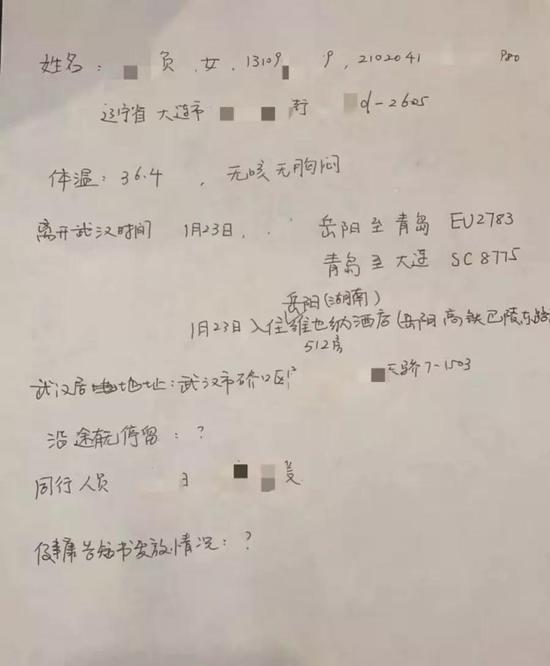 姓名: 员,女,13109 9,2102041
辽宁省大连市 街 d-2605
体温:36.4 ,无咳无胸闷
离开武汉时间 1月23日,. 岳阳至青岛 EU2783
青岛至大连 SC8775
岳阳(湖南)
1月23日入住维也纳酒店(岳阳高铁巴陵东路
512房
武汉居住地址:武汉市硚口区 天骄7-1503
沿途有无停留:?
同行人员
健康告知书发放情况:?